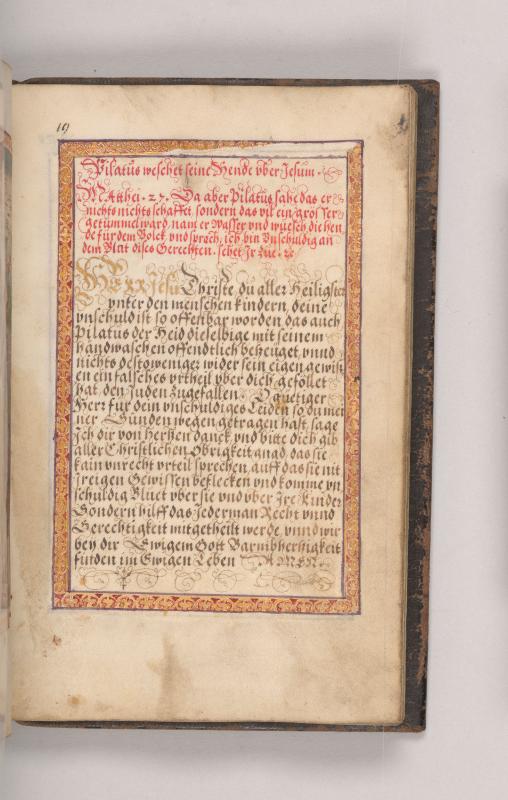 19
Pilatus weschet seine Hende vber Jesum.
Matthei. 27. Da aber Pilatus sahe das er
nichts nichts schaffet, sondern das vil ein grosser
getümmel ward, nam er Wasser vnd wuesch die hen,
de für dem Volck vnd sprach, ich bin Vnschuldig an
dem Blut dises Gerechten. sehet Jr zue. ꝛc
HERR Jesu Christe, du aller Heiligster
vnter den menschen kindern, deine
vnschuld ist so offenbar worden das auch
Pilatus der Heid dieselbige mit seinem
handwaschen offendtlich bezeuget, vnnd
nichts destoweniger wider sein eigen gewiss
en ein falsches vrtheil vber dich geföllet
hat, den Juden zugefallen. O gütiger
Herr für dein vnschuldiges Leiden so du mei
ner Sünden wegen getragen hast, sage
Jch dir von hertzen danck, vnd bitte dich gib
aller Christlichen Obrigkeit gnad, das sie
kain vnrecht vrteil sprechen, auff das sie nit
jr eigen Gewissen beflecken vnd komme vn
schuldig Bluet vber sie vnd vber Jre Kinder
Sondern hilff das Jederman Recht vnnd
Gerechtigkeit mitgetheilt werde, vnnd wir
bey dir Ewigem Gott Barmbhertzigkeit
finden im Ewigen Leben AMEN.